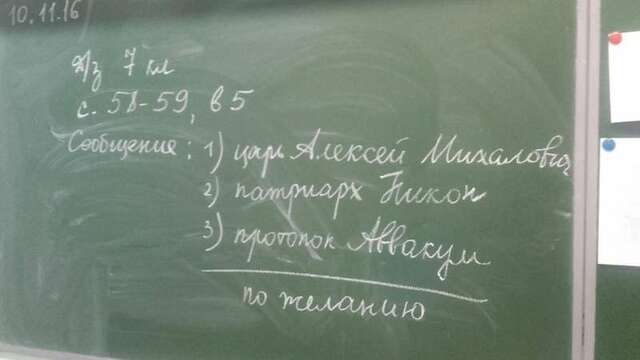 10.11.16
д/з 7 кл
с. 58-59, в 5
Сообщение: 1) царь Алексей Михалович
2) патриарх Никон
3) протопоп Аввакум
по желанию